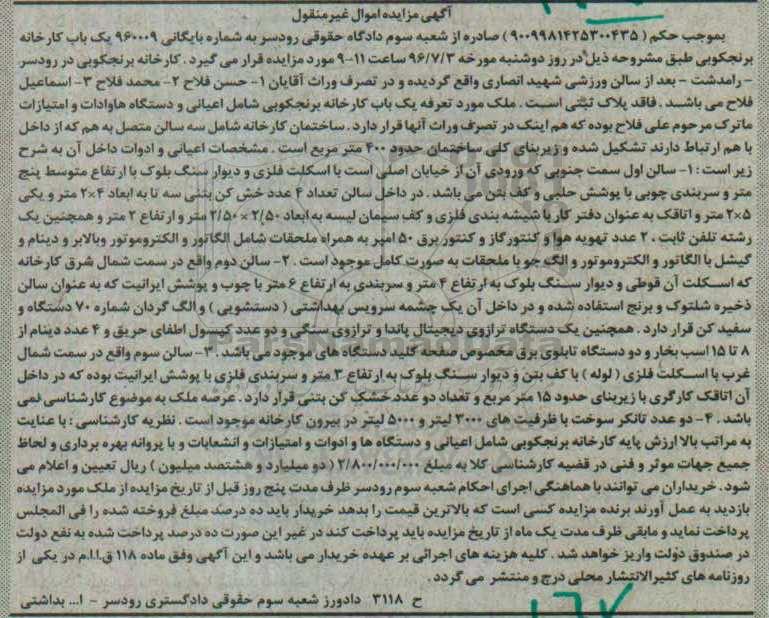 آگهی مزایده اموال غیرمنقول
بموجب حکم ( ۹۰۰۹۹۸۱۴۲۵۳۰۰۴۳۵) صادره از شعبه سوم دادگاه حقوقی رودسر به شماره بایگانی ۹۶۰۰۰۹ یک باب کارخانه
برنجکوبی طبق مشروحه ذیل در روز دوشنبه مورخه ۹۶/۷/۳ ساعت ۱۱-۹ مورد مزایده قرار می گیرد . کارخانه برنجکوبی در رودسر
- رامدشت - بعد از سالن ورزشی شهید انصاری واقع گردیده و در تصرف وراث آقایان ۱- حسن فلاح ۲- محمد فلاح ۳- اسماعیل
فلاح می باشد . فاقد پلاک ثبتی است . ملک مورد تعرفه یک باب کارخانه برنجکوبی شامل اعیانی و دستگاه هاوادات و امتیازات
ماترک مرحوم علی فلاح بوده که هم اینک در تصرف وراث آنها قرار دارد . ساختمان کارخانه شامل سه سالن متصل به هم که از داخل
با هم ارتباط دارند تشکیل شده و زیربنای کلی ساختمان حدود ۴۰۰ متر مربع است . مشخصات اعیانی و ادوات داخل آن به شرح
زیر است : ۱- سالن اول سمت جنوبی که ورودی آن از خیابان اصلی است با اسکلت فلزی و دیوار سنگ بلوک با ارتفاع متوسط پنج
متر و سربندی چوبی با پوشش حلبی و کف بتن می باشد . در داخل سالن تعداد ۴ عدد خش کن بتنی سه تا به ابعاد ۴×۲ متر و یکی
۵×۲ متر و اتاقک به عنوان دفتر کار با شیشه بندی فلزی و کف سیمان لیسه به ابعاد ۲/۵۰ × ۲/۵۰ متر و ارتفاع ۲ متر و همچنین یک
رشته تلفن ثابت ، ۲ عدد تهویه هوا و کنتور گاز و کنتور برق ۵۰ امپر به همراه ملحقات شامل الگاتور و الکتروموتور وبالابر و دینام و
گیشل با الگاتور و الکتروموتور و الگ جو با ملحقات به صورت کامل موجود است . ۲- سالن دوم واقع در سمت شمال شرق کارخانه
که اسکلت آن قوطی و دیوار سنگ بلوک به ارتفاع ۴ متر و سربندی به ارتفاع ۶ متر با چوب و پوشش ایرانیت که به عنوان سالن
ذخیره شلتوک و برنج استفاده شده و در داخل آن یک چشمه سرویس بهداشتی ( دستشویی ) و الگ گردان شماره ۷۰ دستگاه و
سفید کن قرار دارد . همچنین یک دستگاه ترازوی دیجیتال پاندا و ترازوی سنگی و دو عدد کپسول اطفای حریق و ۴ عدد دینام از
۸ تا ۱۵ اسب بخار و دو دستگاه تابلوی برق مخصوص صفحه کلید دستگاه های موجود می باشد . ۳- سالن سوم واقع در سمت شمال
غرب با اسکلت فلزی ( لوله ) با کف بتن و دیوار سنگ بلوک به ارتفاع ۳ متر و سربندی فلزی با پوشش ایرانیت بوده که در داخل
آن اتاقک کارگری با زیربنای حدود ۱۵ متر مربع و تعداد دو عدد خشک کن بتنی قرار دارد . عرصه ملک به موضوع کارشناسی نمی
باشد . ۴- دو عدد تانکر سوخت با ظرفیت های ۳۰۰۰ لیتر و ۵۰۰۰ لیتر در بیرون کارخانه موجود است . نظریه کارشناسی : با عنایت
به مراتب بالا ارزش پایه کارخانه برنجکوبی شامل اعیانی و دستگاه ها و ادوات و امتیازات و انشعابات و با پروانه بهره برداری و لحاظ
جمیع جهات موثر و فنی در قضیه کارشناسی کلا به مبلغ ۲/۸۰۰/۰۰۰/۰۰۰ ( دو میلیارد و هشتصد میلیون ) ریال تعیین و اعلام می
شود . خریداران می توانند با هماهنگی اجرای احکام شعبه سوم رودسر ظرف مدت پنج روز قبل از تاریخ مزایده از ملک مورد مزایده
بازدید به عمل آورند برنده مزایده کسی است که بالاترین قیمت را بدهد خریدار باید ده درصد مبلغ فروخته شده را فی المجلس
پرداخت نماید و مابقی ظرف مدت یک ماه از تاریخ مزایده باید پرداخت کند در غیر این صورت ده درصد پرداخت شده به نفع دولت
در صندوق دولت واریز خواهد شد . کلیه هزینه های اجرائی بر عهده خریدار می باشد و این آگهی وفق ماده ۱۱۸ ق.ا.ا.م در یکی از
روزنامه های کثیرالانتشار محلی درج و منتشر می گردد .
ح ۳۱۱۸ دادورز شعبه سوم حقوقی دادگستری رودسر - ا... بداشتی
ParsNamadData